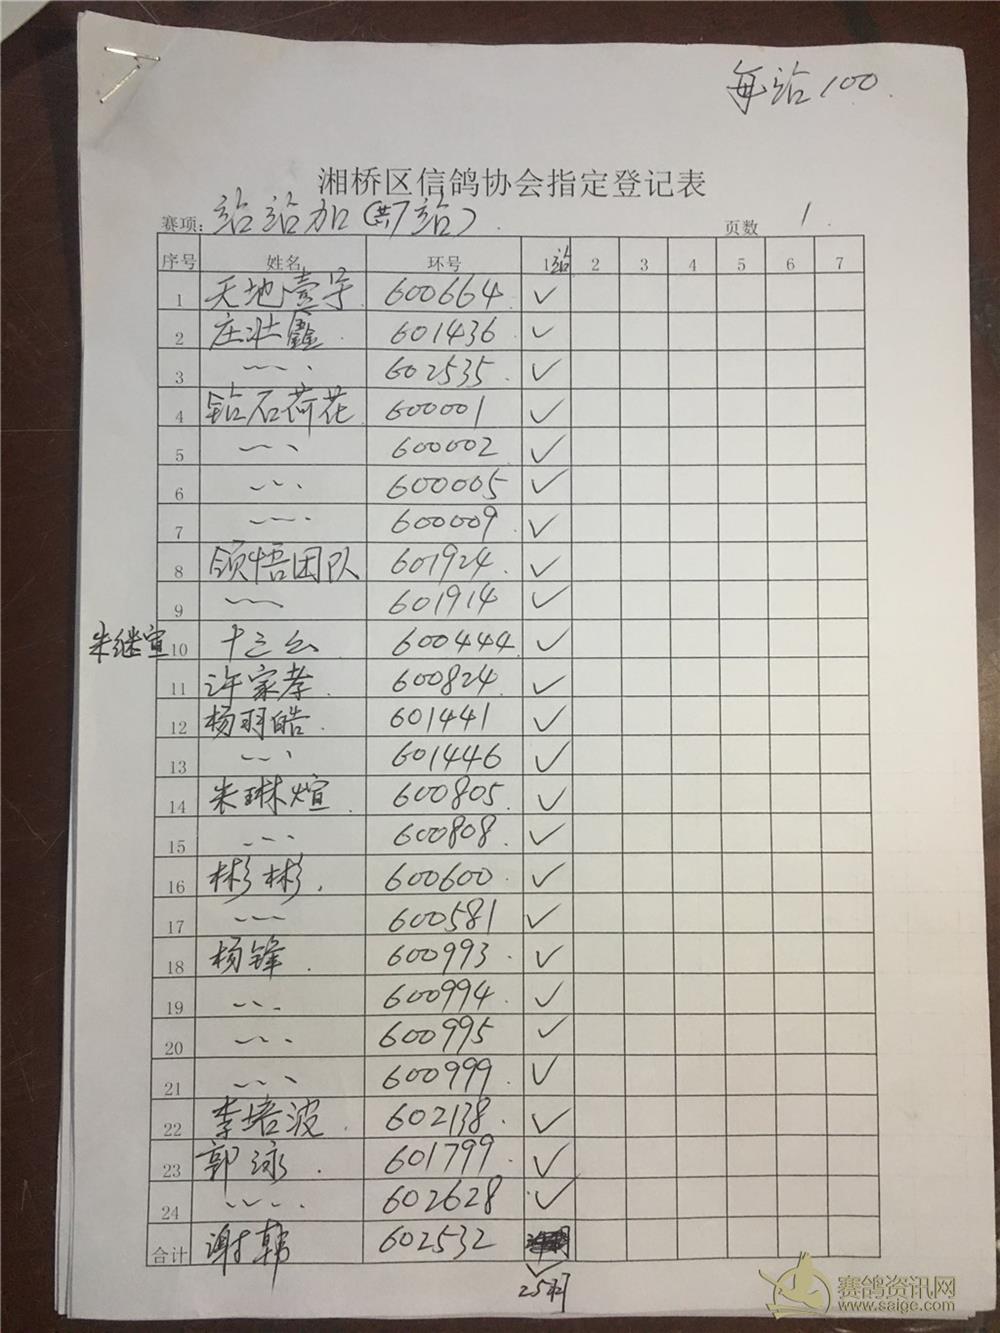 每站100
湘桥区信鸽协会指定登记表
赛项: 站站加(共7站) 页数 1
序号 姓名 环号 1站 2 3 4 5 6 7
1 天地壹号 600664 ✓
2 庄壮鑫 601436 ✓
3 602535 ✓
4 钻石荷花 600001 ✓
5 600002 ✓
6 600005 ✓
7 600009 ✓
8 领悟团队 601924 ✓
9 601914 ✓
朱继宣 10 十三公 600444 ✓
11 许家孝 600824 ✓
12 杨羽皓 601441 ✓
13 601446 ✓
14 朱琳煊 600805 ✓
15 600808 ✓
16 彬彬 600600 ✓
17 600581 ✓
18 杨锋 600993 ✓
19 600994 ✓
20 600995 ✓
21 600999 ✓
22 李培波 602138 ✓
23 郭泳 601799 ✓
24 602628 ✓
合计 谢韩 602532 ✓
25羽
赛鸽资讯网
www.saige.com